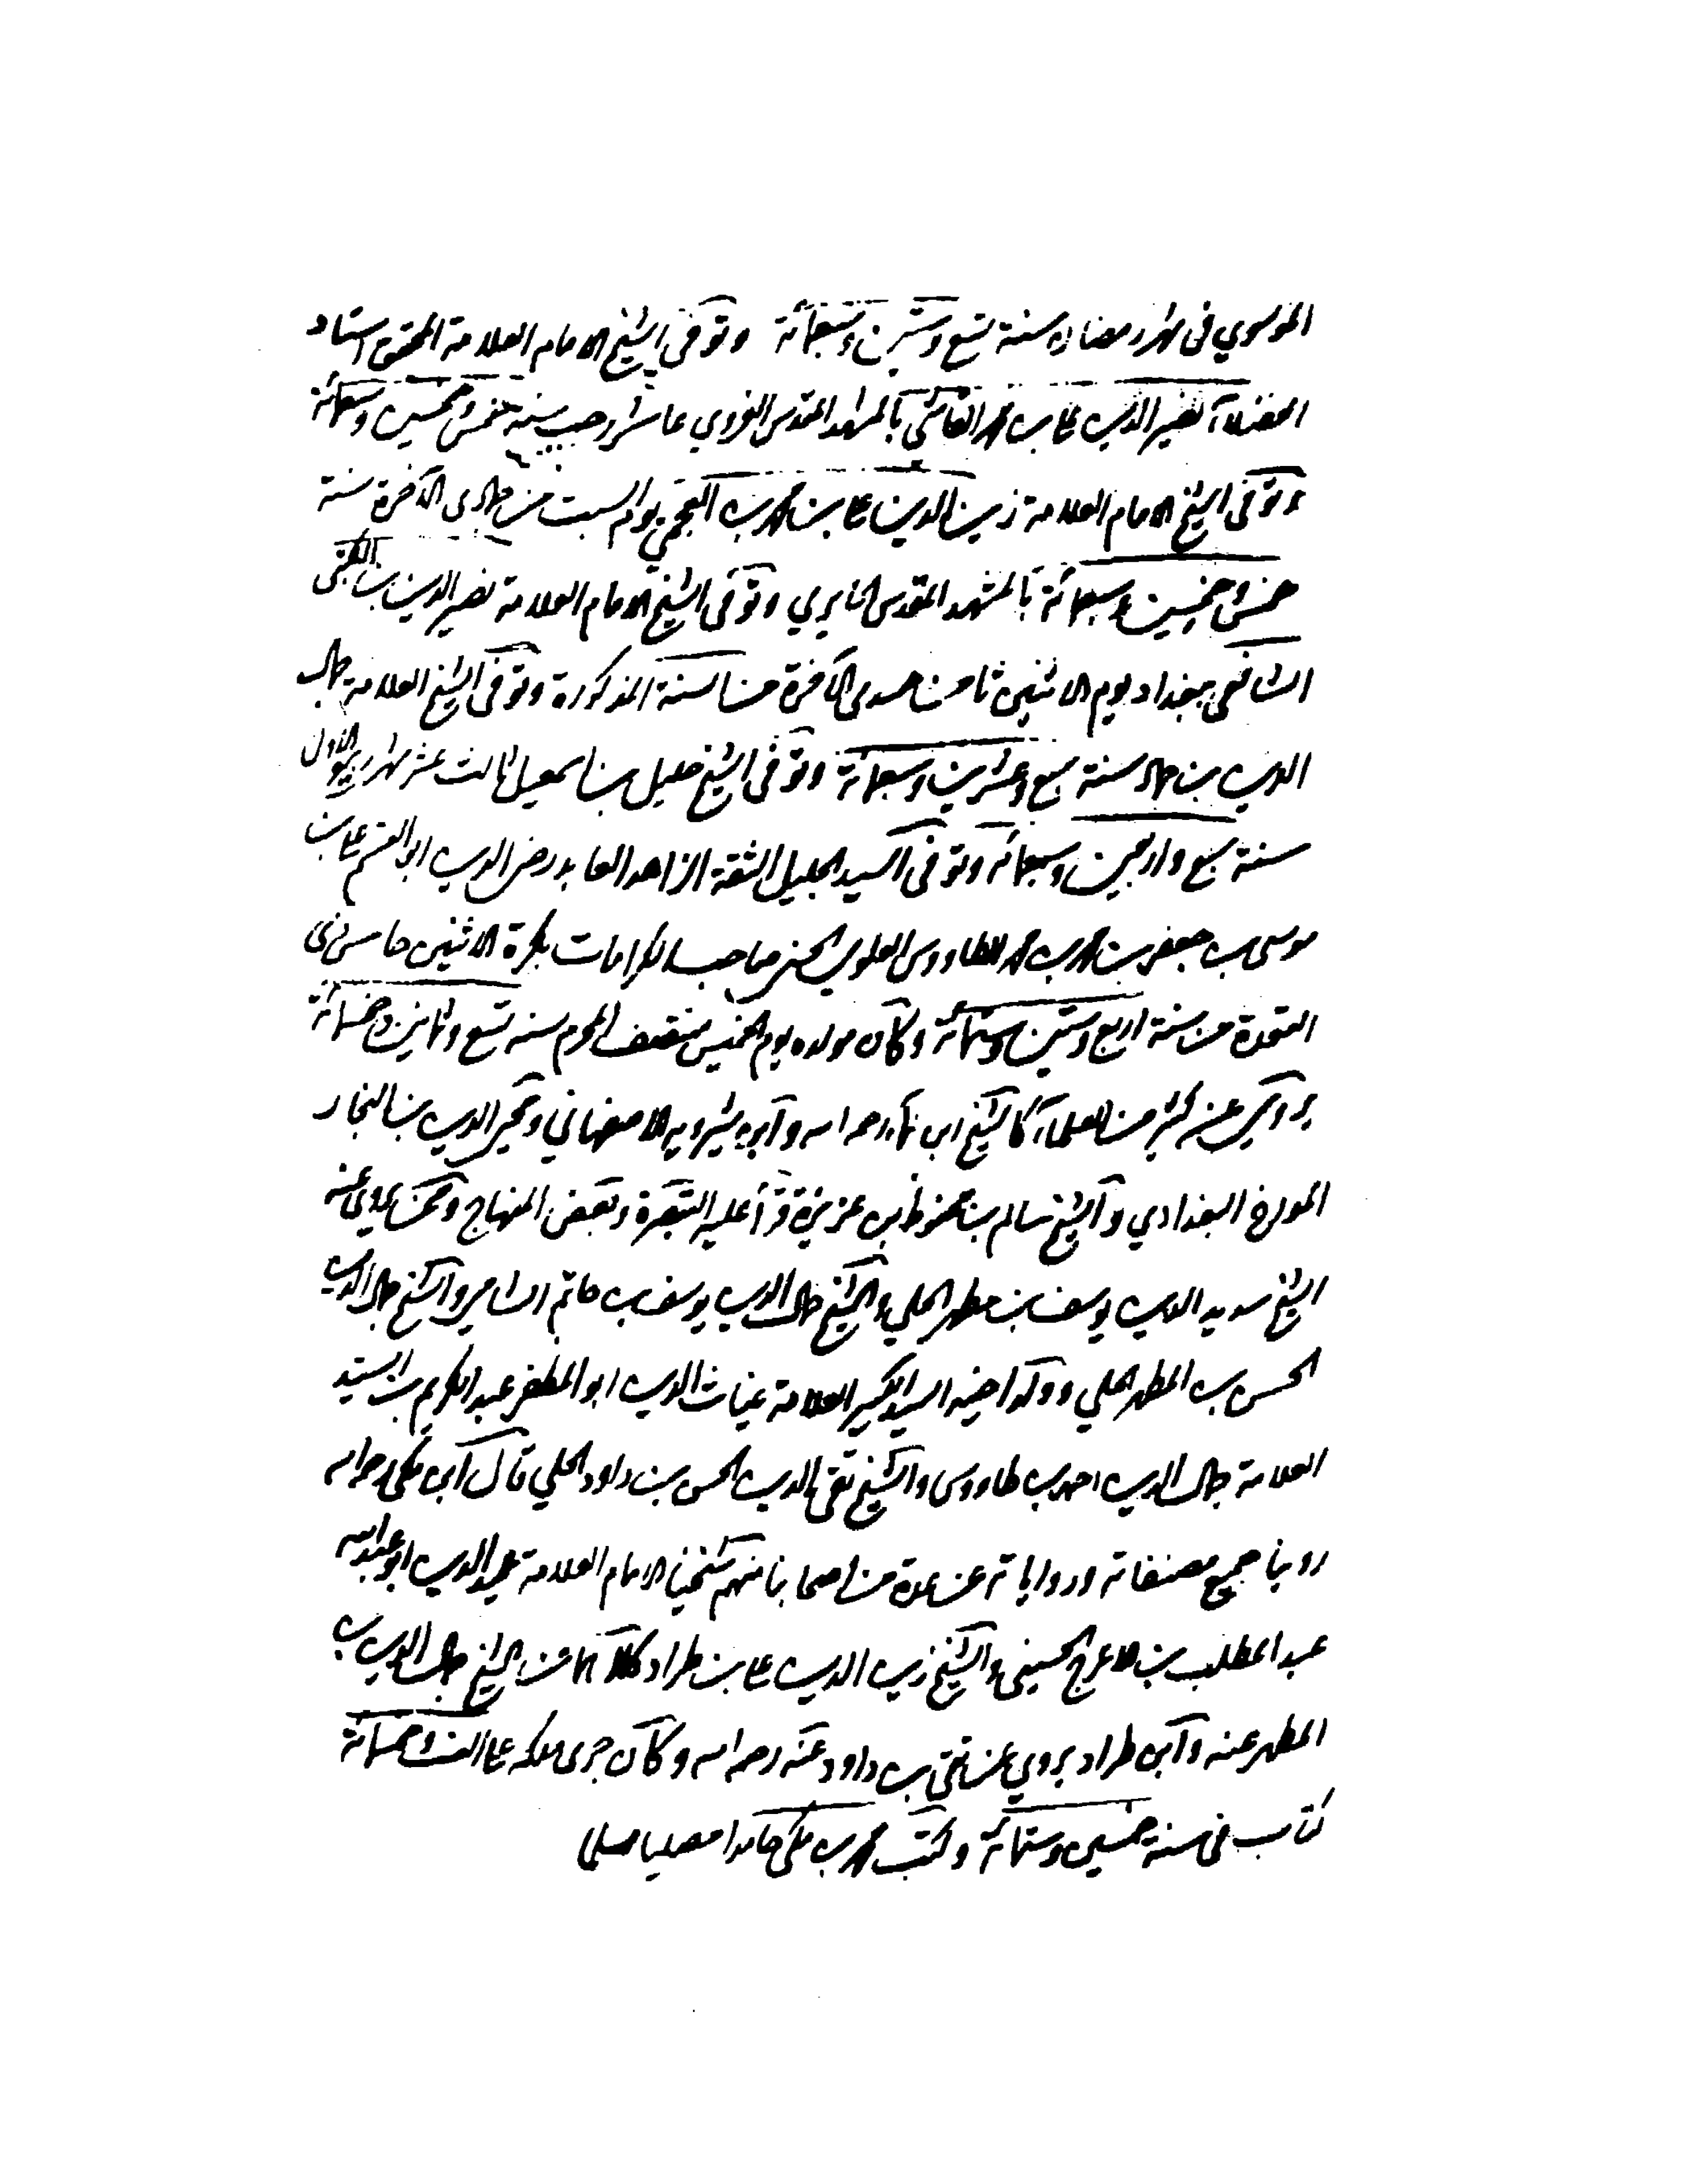 الموسوي في شهر رمضان سنة تسع وستين وسبعمائة وتوفى الشيخ الامام العلامة المحقق استاد
الفضلاء نصير الدين علي بن محمد القاشي بالمشهد المقدس الغروي عاشر رجب سنة خمس وخمسين وسبعمائة
وتوفى الشيخ الامام العلامة زين الدين علي بن محمد بن العجمي يوم السبت من جمادى الآخرة سنة
خمس وخمسين وسبعمائة بالمشهد المقدس الحايري وتوفى الشيخ الامام العلامة نصير الدين بن
الشافعي ببغداد يوم الاثنين ثامن جمدى الآخرة من السنة المذكورة وتوفى الشيخ العلامة جمال
الدين بن حماد سنة سبع وعشرين وسبعمائة وتوفى الشيخ خليل بن اسمعيل ثالث عشر شهر ربيع الاول
سنة سبع واربعين وسبعمائة وتوفى السيد الجليل الثقة الزاهد العابد رضى الدين ابو القسم علي بن
موسى بن جعفر بن محمد بن محمد الطاووس العلوي الحسني صاحب الكرامات بكرة الاثنين خامس ذى
القعدة من سنة اربع وستين وستمائة وكان مولده يوم الخميس منتصف المحرم سنة تسع وثمانين وخمسمائة
يروى عن كثير من العلماء كالشيخ ابن نما رحمه الله وابن شيرويه الاصفهاني ومحب الدين بن النجار
المورخ البغدادي والشيخ سالم بن محفوظ بن عزيزة قرأ عليه التبصرة وبعض المنهاج وممن يروى عنه
الشيخ سديد الدين يوسف بن مطهر الحلي والشيخ جمال الدين يوسف بن حاتم الشامي والشيخ جمال الدين
الحسن بن المطهر الحلي وولد اخيه السيد الكبير العلامة غياث الدين ابو المظفر عبد الكريم بن السيد
العلامة جمال الدين احمد بن طاووس والشيخ تقى الدين الحسن بن داود الحلي قال ابن مكى رحمه الله
روينا جميع مصنفاته ورواياته عن عدة من اصحابنا منهم شيخنا الامام العلامة عميد الدين ابو عبد الله
عبد المطلب بن الاعرج الحسيني والشيخ زين الدين علي بن طراد كلاهما عن الشيخ جمال الدين بن
المطهر عنه وابن طراد يروي عن تقى بن داود عنه رحمه الله وكان جرى ملكه على الف وخمسمائة
كتاب في سنة خمسين وستمائة وكتب محمد بن مكي حامدا مصليا مسلما